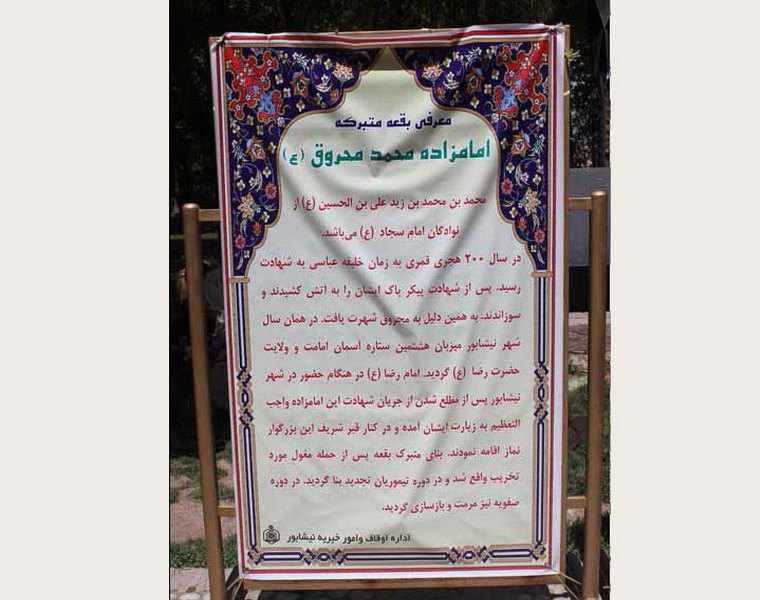 معرفی بقعه متبرکه
امامزاده محمد محروق (ع)
محمد بن محمد بن زید علی بن الحسین (ع) از
نوادگان امام سجاد (ع) می‌باشد.
در سال ۲۰۰ هجری قمری به زمان خلیفه عباسی به شهادت
رسید. پس از شهادت پیکر پاک ایشان را به اتش کشیدند و
سوزاندند. به همین دلیل به محروق شهرت یافت. در همان سال
شهر نیشابور میزبان هشتمین ستاره آسمان امامت و ولایت
حضرت رضا (ع) گردید. امام رضا (ع) در هنگام حضور در شهر
نیشابور پس از مطلع شدن از جریان شهادت این امامزاده واجب
التعظیم به زیارت ایشان آمده و در کنار قبر شریف این بزرگوار
نماز اقامه نمودند. بنای متبرک بقعه پس از حمله مغول مورد
تخریب واقع شد و در دوره تیموریان تجدید بنا گردید. در دوره
صفویه نیز مرمت و بازسازی گردید.
اداره اوقاف وامور خیریه نیشابور